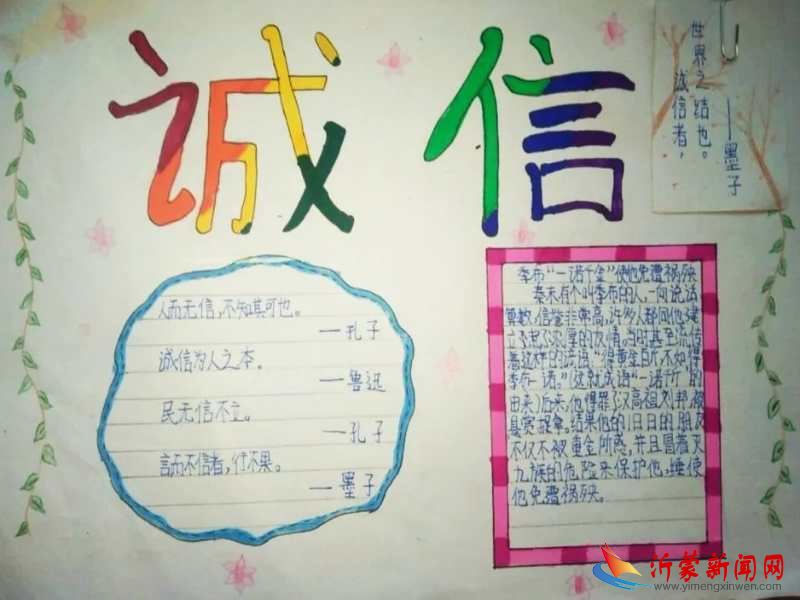 诚信
诚信者，
世界之结也。
——墨子
人而无信，不知其可也。
——孔子
诚信为人之本。
——鲁迅
民无信不立。
——孔子
言而不信者，行不果。
——墨子
季布“一诺千金”使他免遭祸殃
秦末有个叫季布的人，一向说话
算数，信誉非常高，许多人都同他建
立了浓厚的友情。当时甚至流传
着这样的谚语：“得黄金百斤，不如得
季布一诺。”(这就成语“一诺千 的
由来)后来，他得罪了汉高祖刘邦，被
悬赏捉拿。结果他的旧日的朋友
不仅不被重金所惑，并且冒着灭
九族的危险来保护他， 使
他免遭祸殃。
沂蒙新闻网
www.yimengxinwen.com